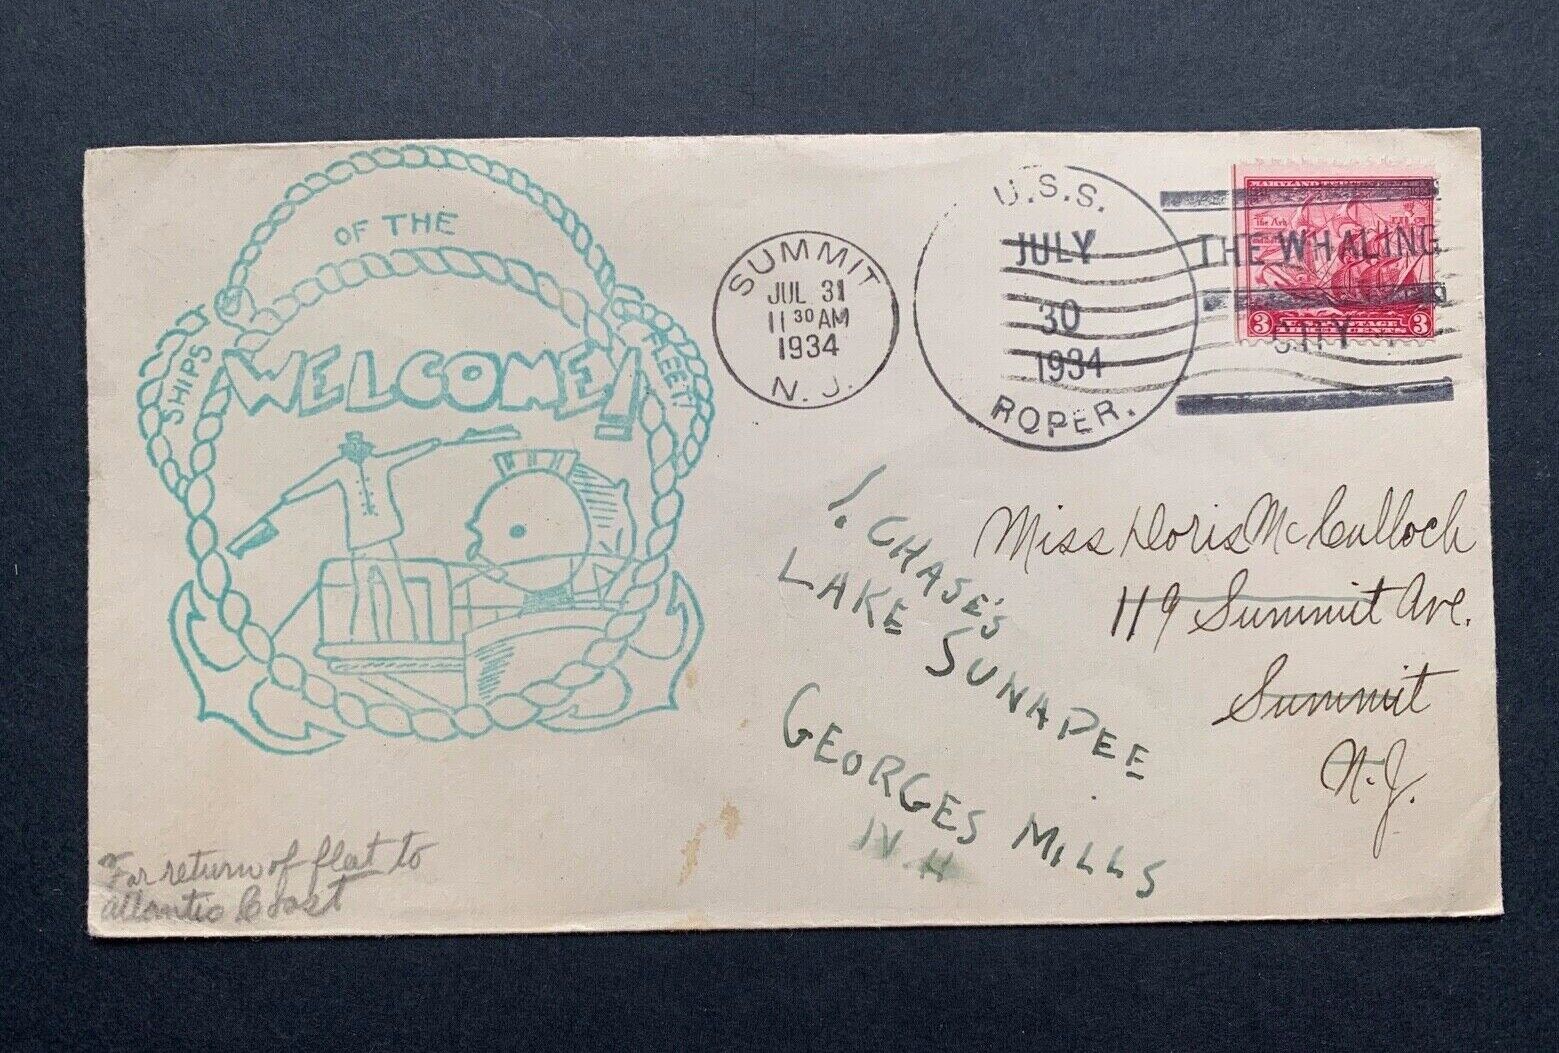 OF THE
SHIPS
FLEET!
WELCOME!!
SUMMIT
JUL 31
11 30 AM
1934
N. J.
U.S.S.
JULY
30
1934
ROPER.
THE WHALING
CITY
The Ark
3
3
Miss Doris McCulloch
119 Summit Ave.
Summit
N.J.
CHASE'S
LAKE SUNAPEE
GEORGES MILLS
N.H
For return of fleet to
Atlantic Coast